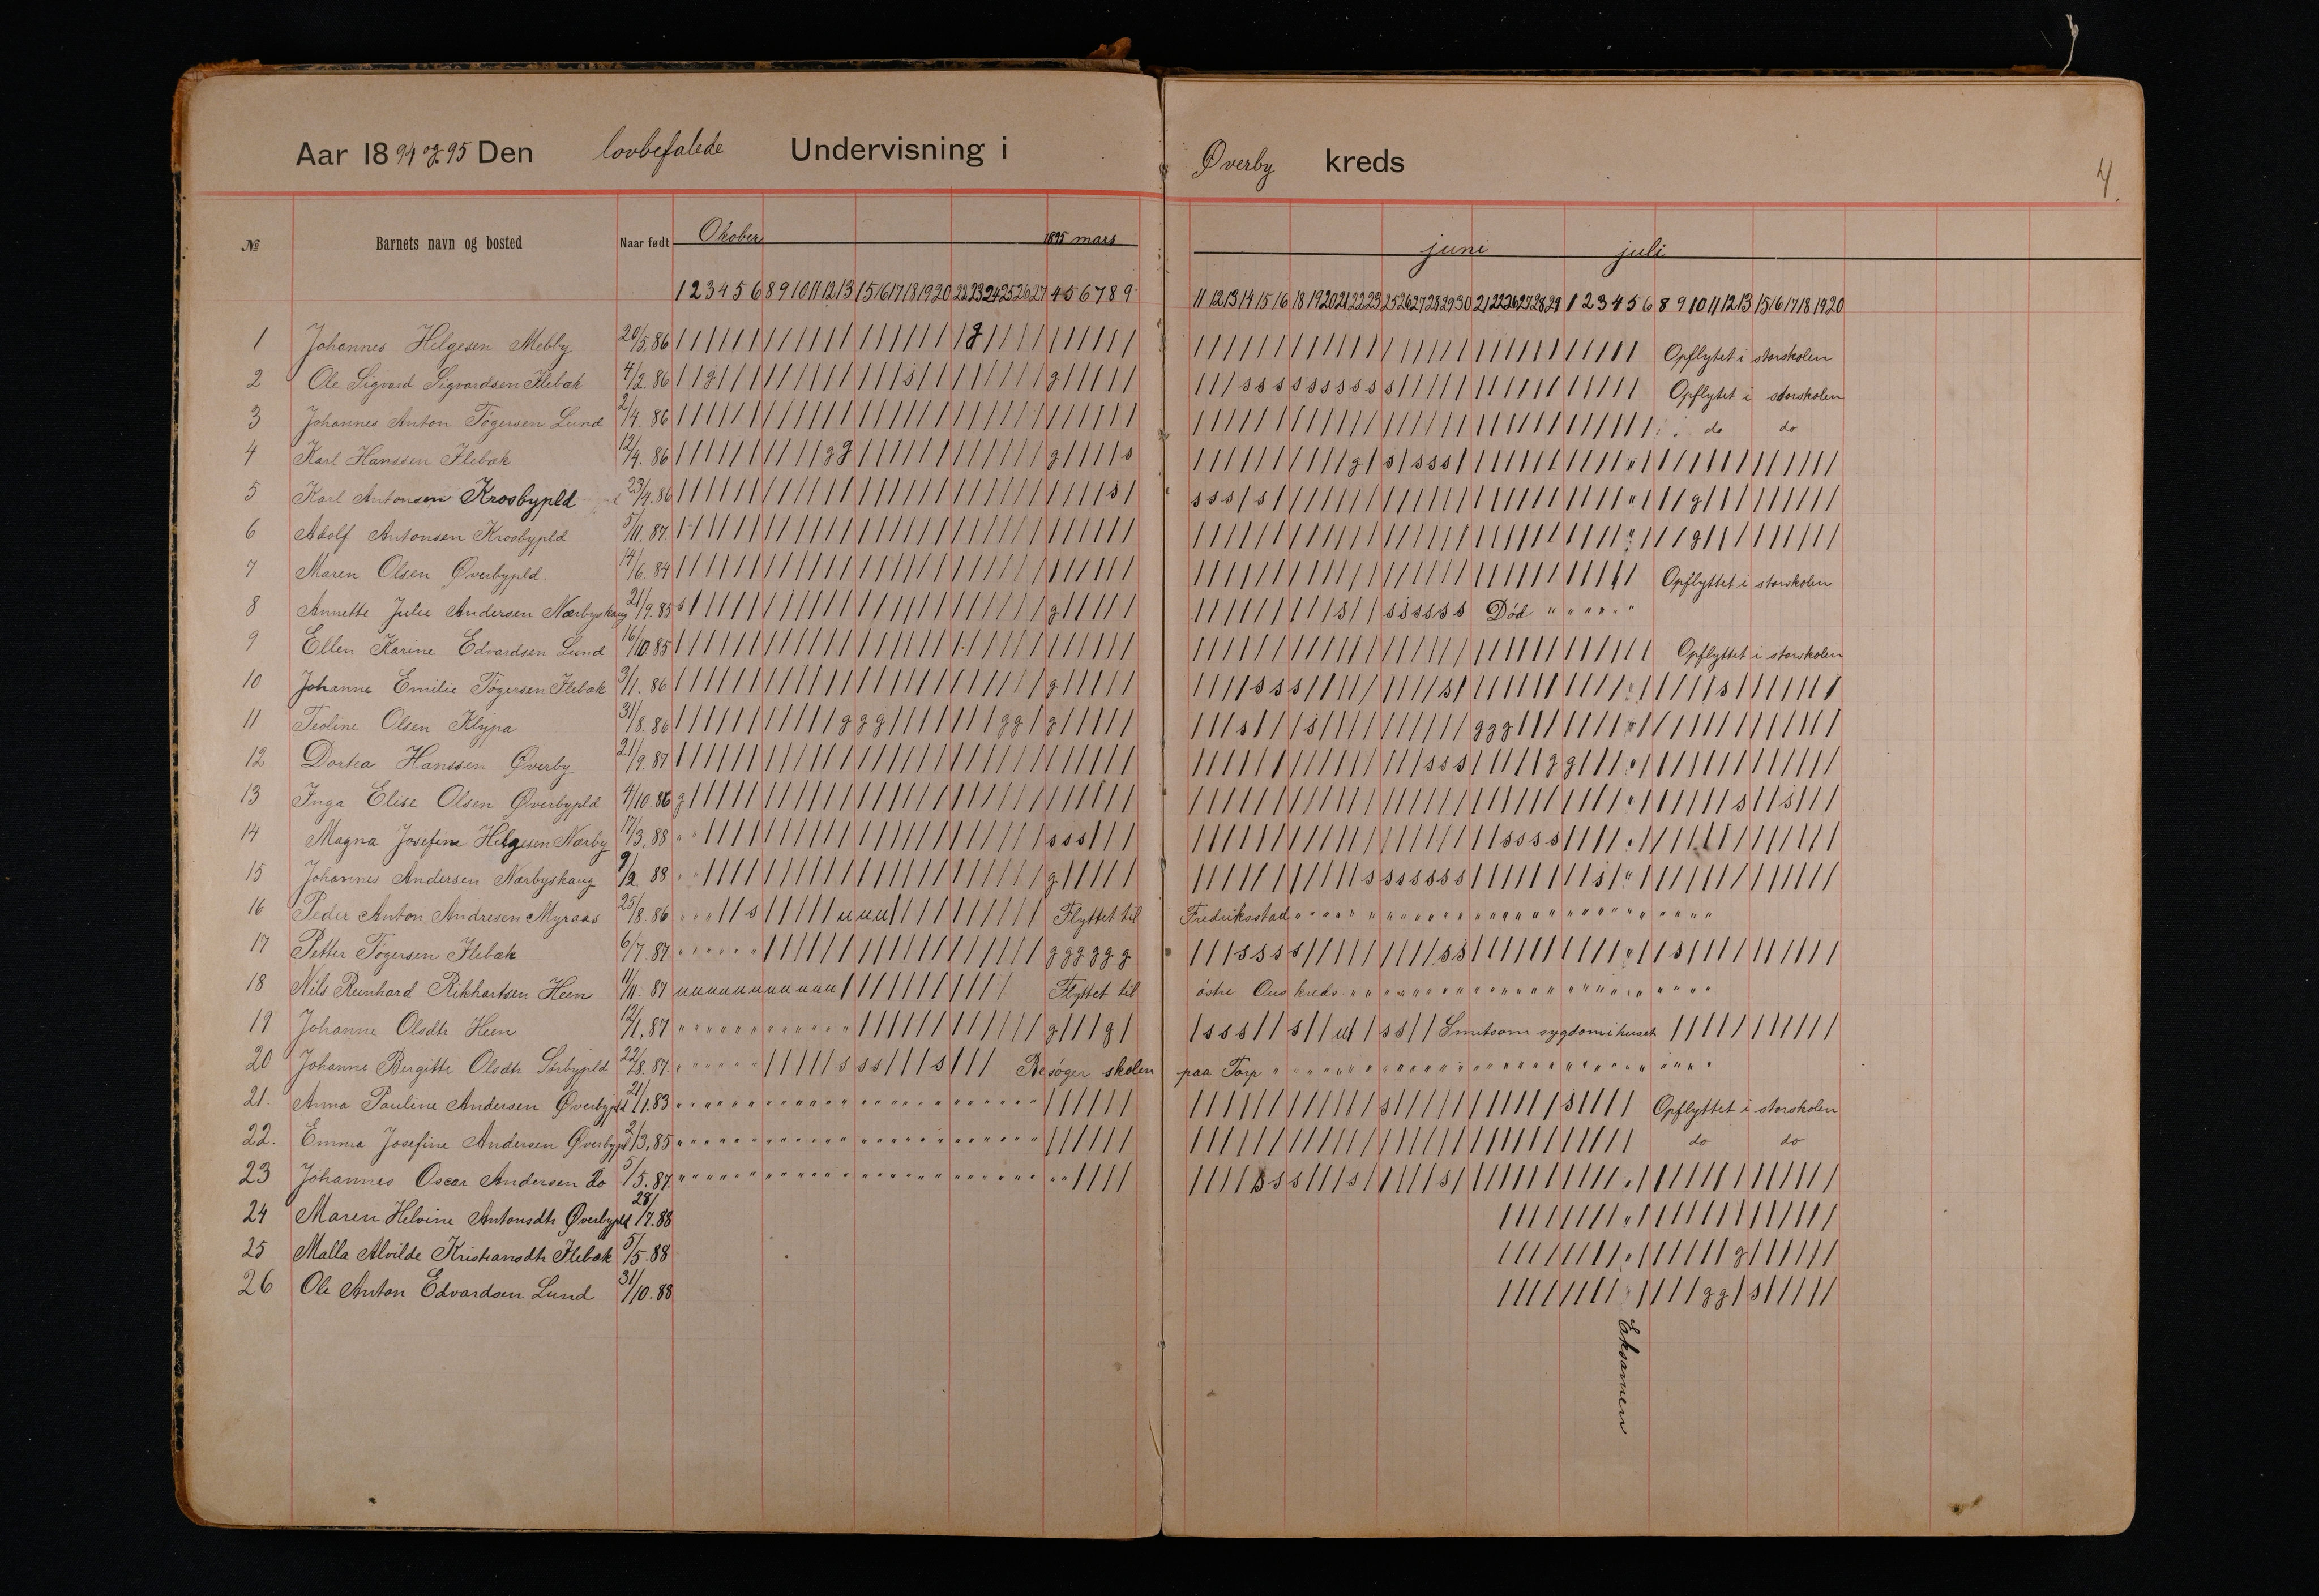 Aar 1894 og 95 Den lovbefalede Undervisning i Øverby kreds 4.
№ Barnets navn og bosted Naar født Okober 1895 mars juni juli
1 2 3 4 5 6 8 9 10 11 12 13 15 16 17 18 19 20 22 23 24 25 26 27 4 5 6 7 8 9 11 12 13 14 15 16 18 19 20 21 22 23 25 26 27 28 29 30 21 22 26 27 28 29 1 2 3 4 5 6 8 9 10 11 12 13 15 16 17 18 19 20
1 Johannes Helgesen Mebby 20/5.86 Opflytet i storskolen
2 Ole Sigvard Sigvardsen Flebak 4/2.86 Opflytet i storskolen
3 Johannes Anton Tøgersen Lund 2/4.86 do do
4 Karl Hanssen Flebak 12/4.86
5 Karl Antonsen Krosbypld 23/4.86
6 Adolf Antonsen Krosbypld 5/11.87
7 Maren Olsen Øverbypld 14/6.84 Opflyttet i storskolen
8 Annette Julie Andersen Nærbyskaug 21/9.85 Død
9 Ellen Karine Edvardsen Lund 16/10.85 Opflyttet i storskolen
10 Johanne Emilie Tøgersen Flebak 3/1.86
11 Teoline Olsen Klypa 31/8.86
12 Dortea Hanssen Øverby 21/9.87
13 Inga Elise Olsen Øverbypld 4/10.86
14 Magna Josefine Helgesen Nærby 17/3.88
15 Johannes Andersen Nærbyskaug 9/2 88
16 Peder Anton Andresen Myraas 25/8.86 Flyttet til Fredriksstad
17 Petter Tøgersen Flebak 6/7.87
18 Nils Reinhard Rikhartsen Heen 11/11.87 Flyttet til østre Ous kreds
19 Johanne Olsdtr Heen 12/1.87 Smitsom sygdom i huset
20 Johanne Bergitte Olsdtr Sørbypld 22/8.87 Besøger skolen paa Torp
21. Anna Pauline Andersen Øverbypld 21/1.83 Opflyttet i storskolen
22. Emma Josefine Andersen Øverbypl 2/3.85 do do
23 Johannes Oscar Andersen do 5/5.87
24 Maren Helvine Antonsdtr Øverbypld 28/7.88
25 Malla Alvilde Kristiansdtr Flebak 5/5.88
26 Ole Anton Edvardsen Lund 31/10.88
Eksamen